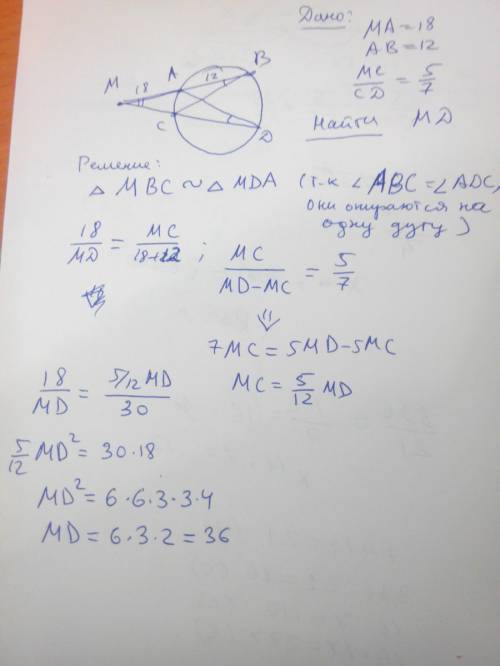 Дано: MA = 18
AB = 12
MC/CD = 5/7
Найти MD
M 18 A 12 B
C D
Решение:
△ MBC ~ △ MDA (т-к ∠ABC = ∠ADC,
они опираются на
одну дугу)
18/MD = MC/18+12 ; MC/MD-MC = 5/7
⇓
7MC = 5MD-5MC
MC = 5/12 MD
18/MD = 5/12 MD/30
5/12 MD² = 30·18
MD² = 6·6·3·3·4
MD = 6·3·2 = 36